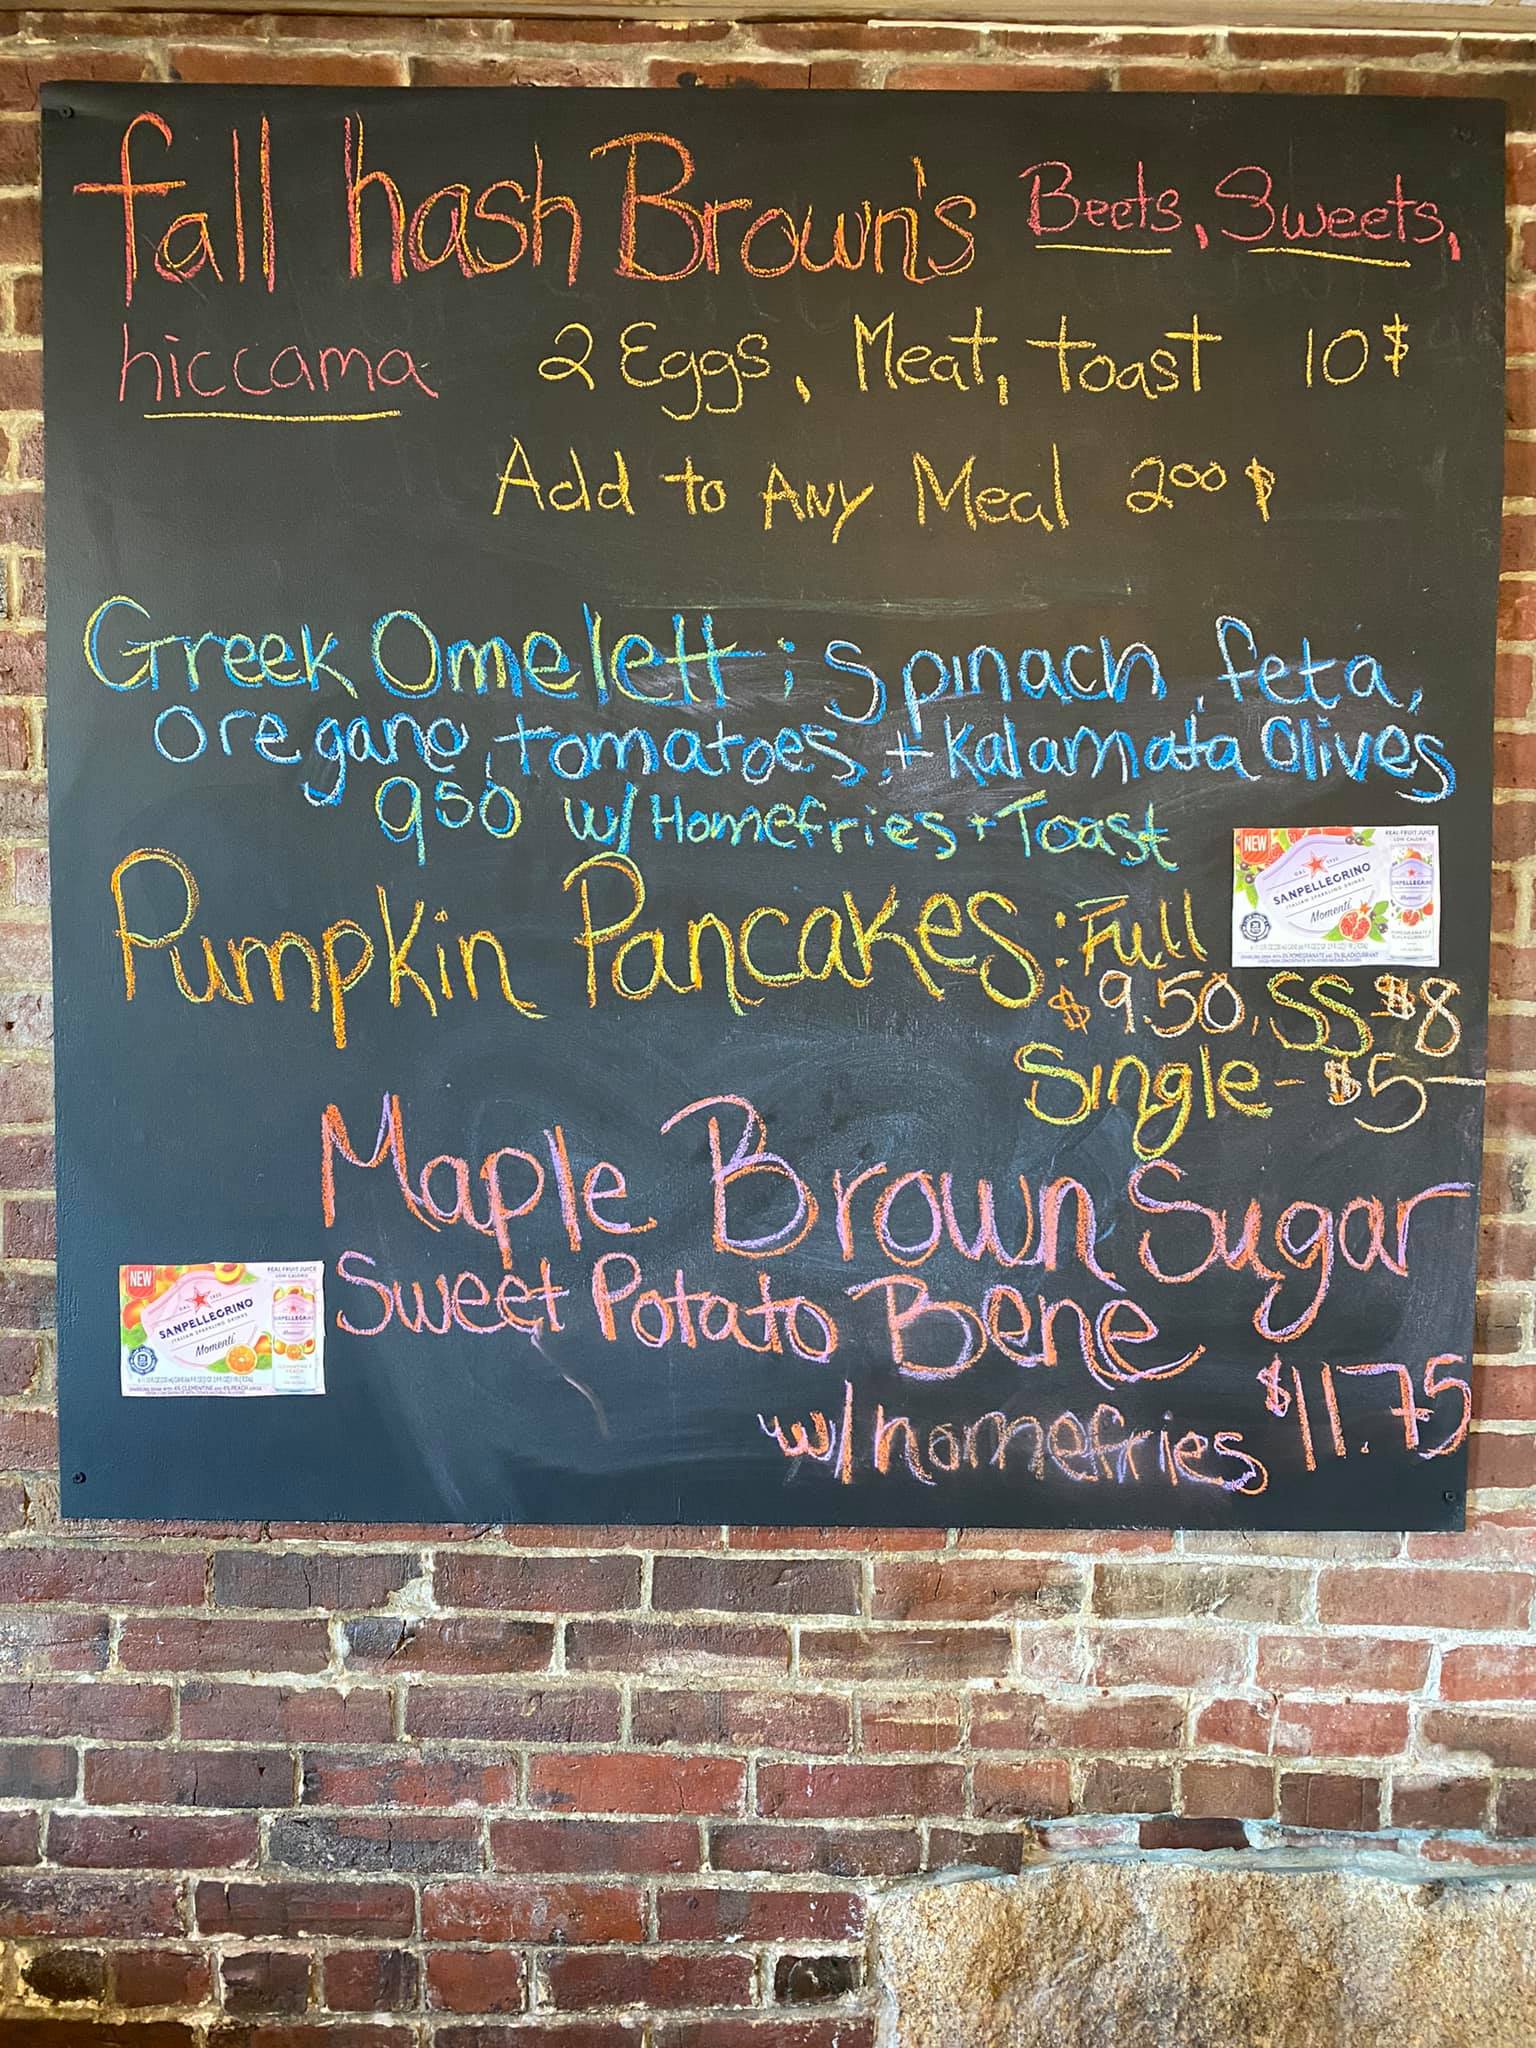 fall hash Brown's Beets, Sweets,
hiccama 2 Eggs, Meat, toast 10$
Add to Any Meal 2⁰⁰ $
Greek Omelett: Spinach, feta,
oregano, tomatoes, + Kalamata Olives
950 w/ Homefries + Toast
Pumpkin Pancakes: Full
$9.50, SS $8
Single - $5 -
Maple Brown Sugar
Sweet Potato Bene
w/ homefries $11.75
NEW
REAL FRUIT JUICE
LOW CALORIE
SANPELLEGRINO
ITALIAN SPARKLING DRINKS
Momenti
NEW
REAL FRUIT JUICE
LOW CALORIE
SANPELLEGRINO
ITALIAN SPARKLING DRINKS
Momenti
CLEMENTINE &
PEACH